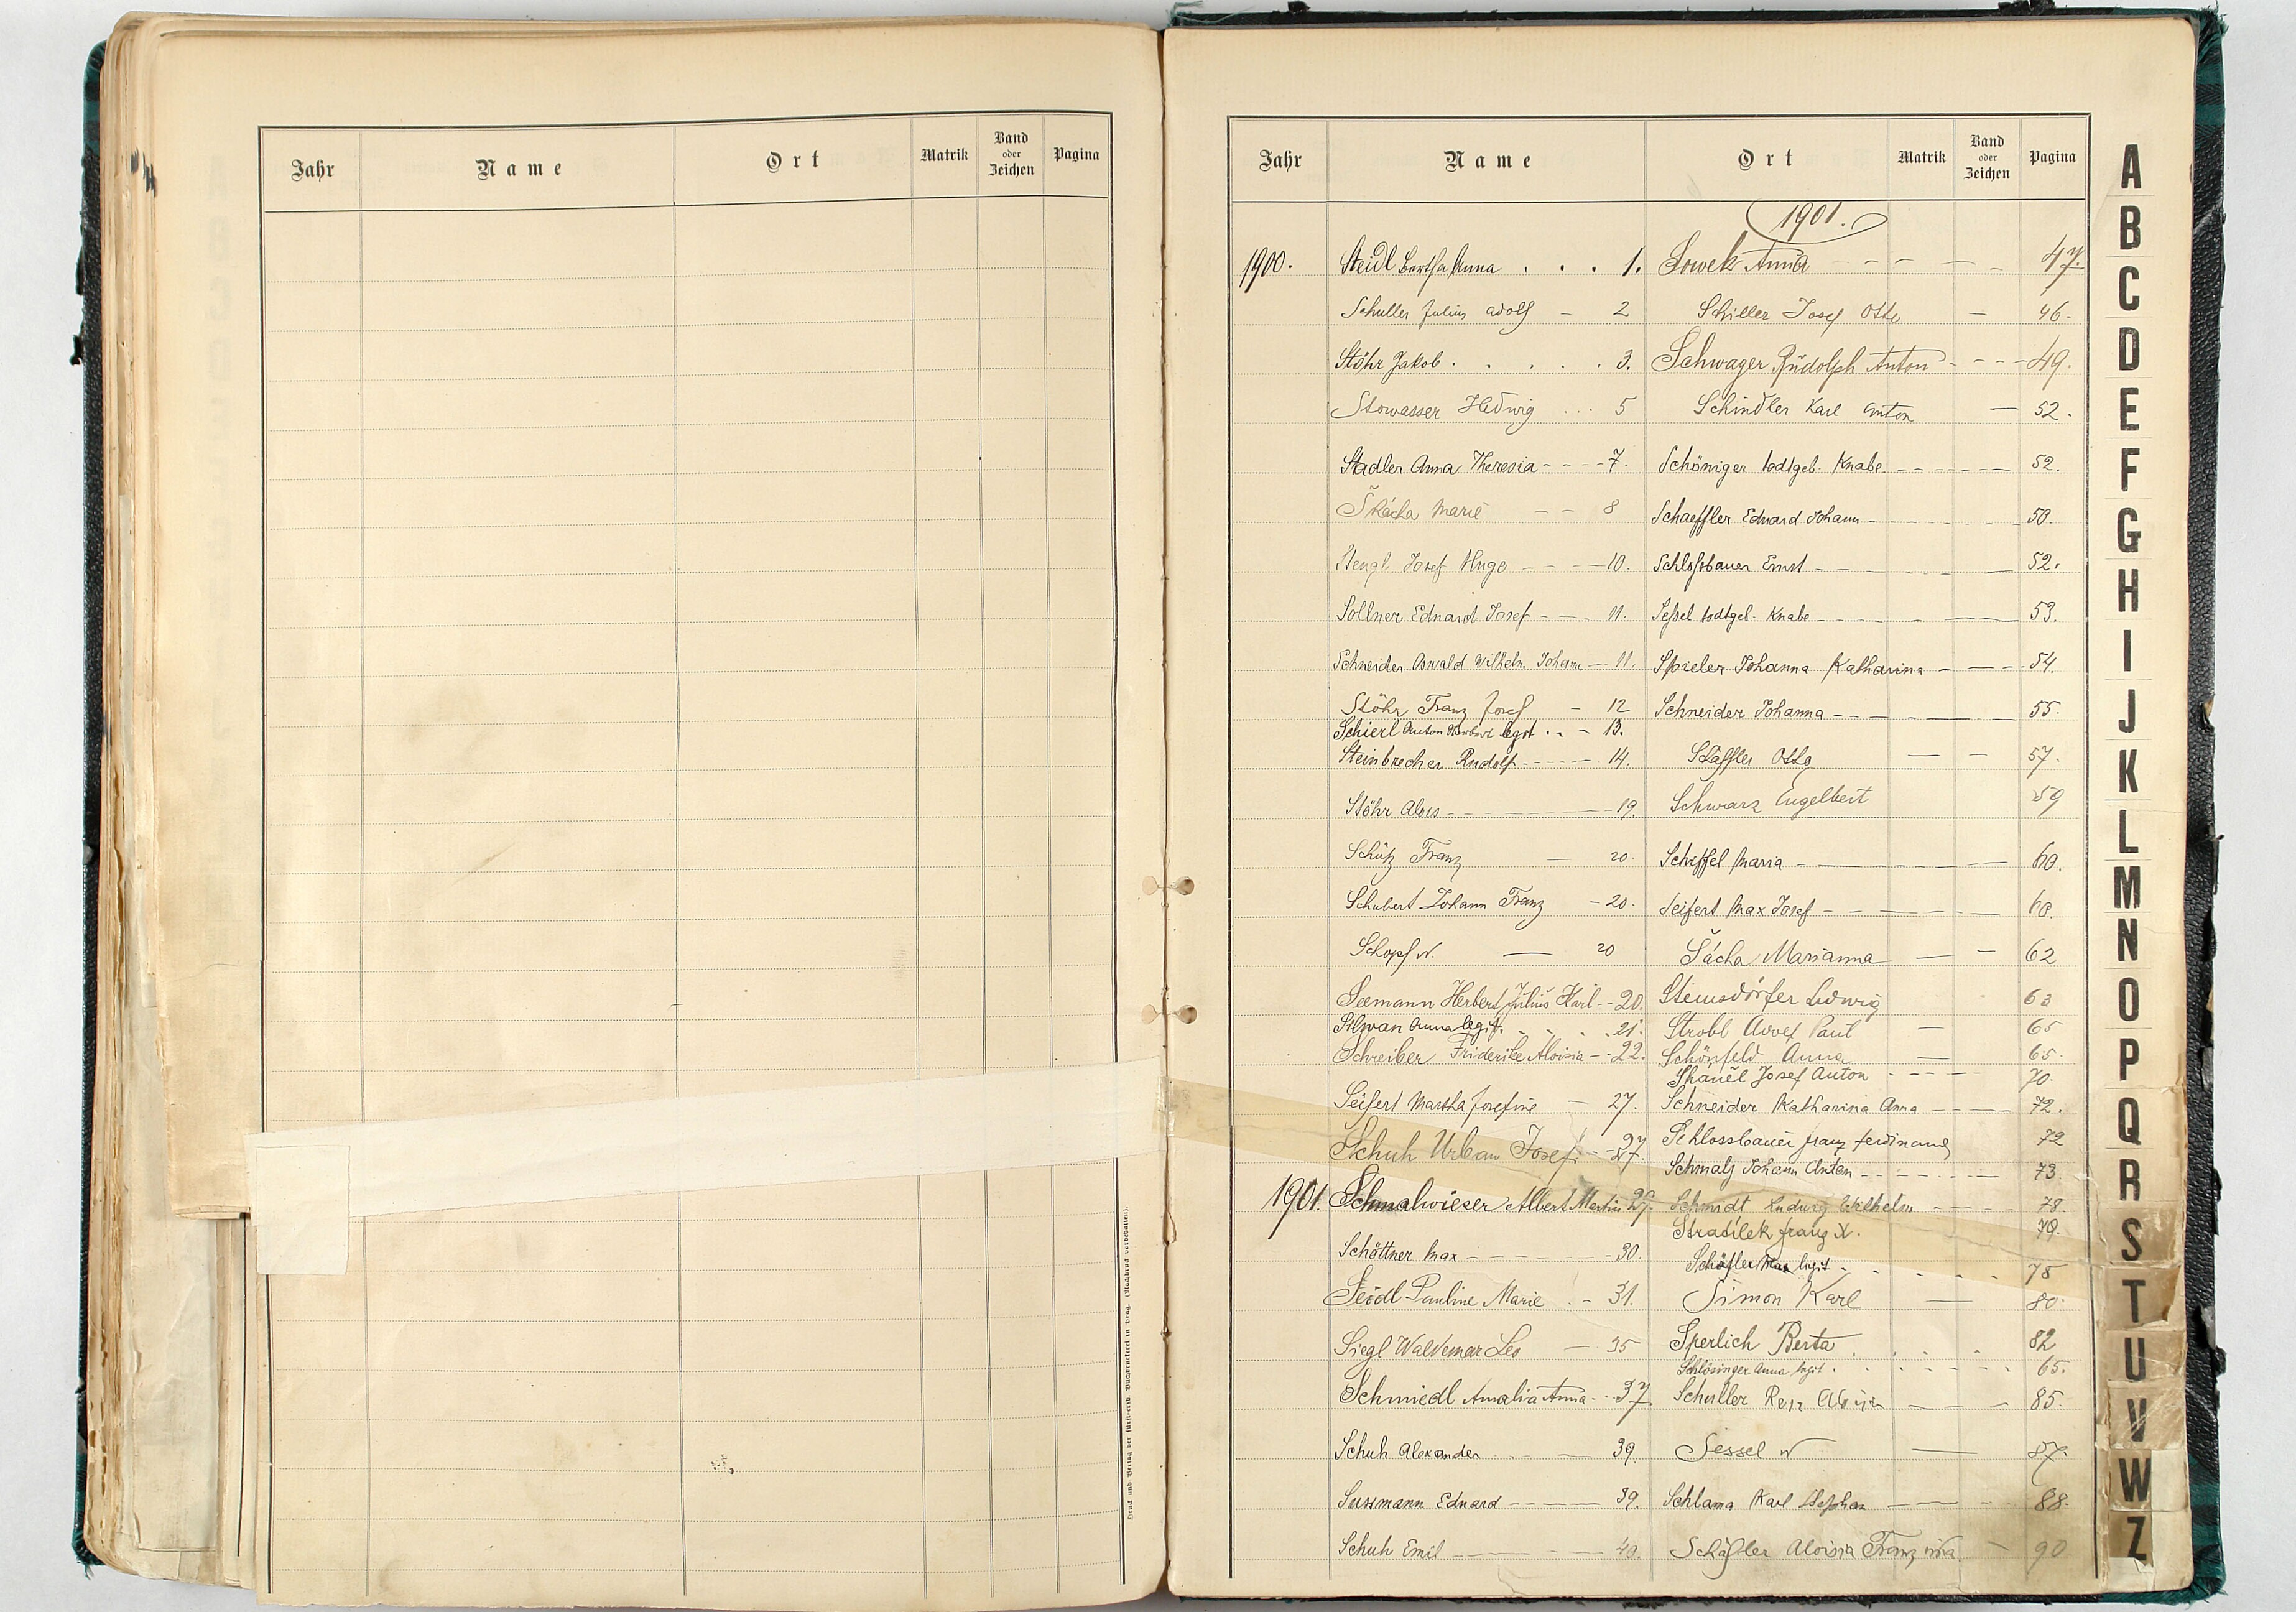 Jahr Name Ort Matrik Band oder Zeichen Pagina
Druck und Verlag der fürst-erzb. Buchdruckerei in Prag. (Nachdruck vorbehalten).
Jahr Name Ort Matrik Band oder Zeichen Pagina
1901.
1900. Steidl Bertha Anna . . . 1. Sowek Anna - - - - 47.
Schuller Julius Adolf - 2 Schiller Josef Otto - 46.
Stöhr Jakob . . . . . 3. Schwager Rudolph Anton - - - 49.
Stowasser Hedwig ... 5 Schindler Karl Anton - 52.
Stadler Anna Theresia - - - - 7. Schöniger todtgeb. Knabe - - - - - 52.
Škácha Marie - - 8 Schaeffler Eduard Johann - - - - 50.
Stengl Josef Hugo - - - - 10. Schloßbauer Ernst - - - - 52.
Sollner Eduard Josef - - - 11. Seßel todtgeb. Knabe - - - - 53.
Schneider Oswald Wilhelm Johann - - 11. Spieler Johanna Katharina - - - - 54.
Stöhr Franz Josef - 12 Schneider Johanna - - - - 55.
Schierl Anton legit .. - 13.
Steinbrecher Rudolf - - - - - 14. Schäffler Otto - - 57.
Stöhr Alois - - - - - 19. Schwarz Engelbert 59
Schütz Franz - 20. Schiffel Maria - - - - 60.
Schubert Johann Franz - 20. Seifert Max Josef - - - - 60.
Schopf N. - 20 Šácha Marianna - - 62
Seemann Herbert Julius Karl - - 20. Steinsdörfer Ludwig 63
Silwan Anna legit. - - . . 21. Strobl Adolf Paul - 65
Schreiber Friderike Aloisia - - 22. Schönfeld Anna - 65.
Josef Anton - - - - 70.
Seifert Martha Josefine - 27. Schneider Katharina Anna - - - - 72.
Schuh Urban Josef. - - 27. Schlossbauer Franz Ferdinand 72
Schmalz Johann Anton - - - - 73.
1901. Schmalwieser Albert Martin 29. Schmidt Ludwig Wilhelm - - - - 78.
Stradilek Franz X. 79.
Schöttner Max - - - - - 30. Schöfler Max legit - . . . . 78
Seidl Pauline Marie . - 31. Simon Karl - 80.
Siegl Waldemar Leo - 35 Sperlich Berta . . . . . 82
Schlösinger Anna legit . . . . . 65.
Schmiedl Amalia Anna - - 37 Schuller - - - 85.
Schuh Alexander - - - 39. Sessel N - 87.
Sussmann Eduard - - - - 39. Schlama Karl Stephan - - - 88.
Schuh Emil - - - - 40. Schäffler Aloisia Franziska - 90
A
B
C
D
E
F
G
H
I
J
K
L
M
N
O
P
Q
R
S
T
U
V
W
Z